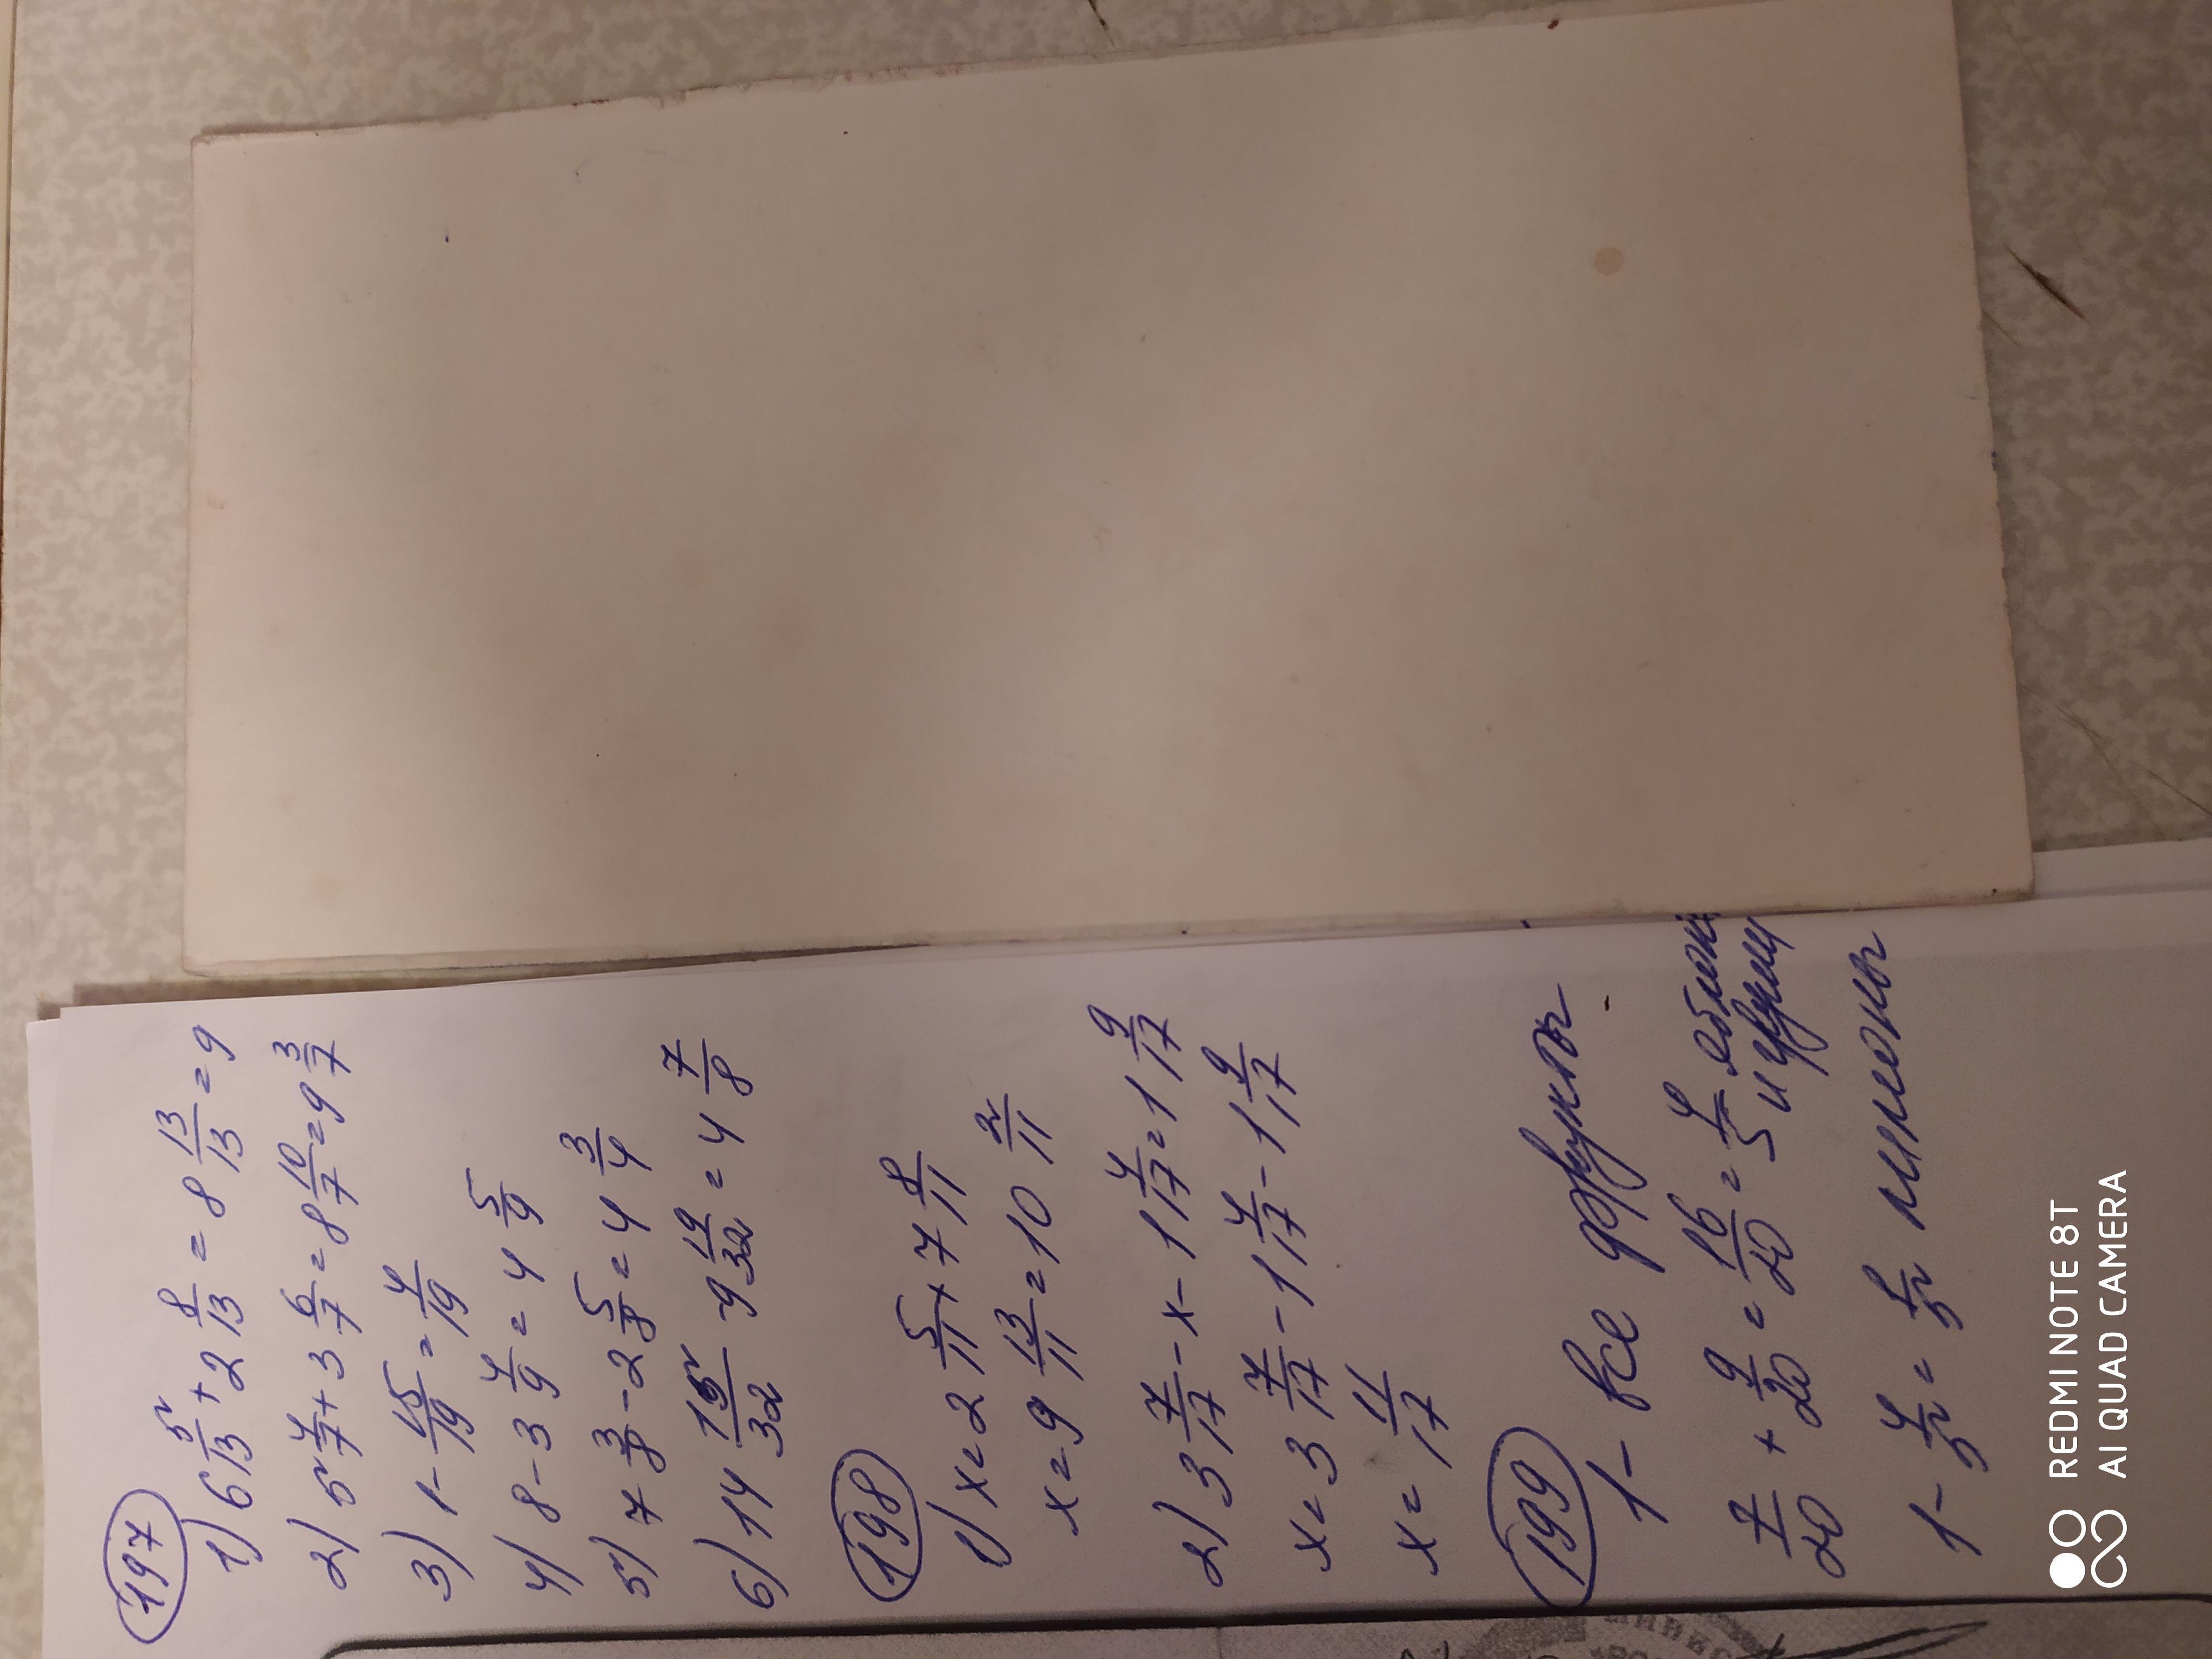 197
1) 6 5/13 + 2 8/13 = 8 13/13 = 9
2) 5 4/7 + 3 6/7 = 8 10/7 = 9 3/7
3) 1 - 15/19 = 4/19
4) 8 - 3 4/9 = 4 5/9
5) 7 3/8 - 2 5/8 = 4 3/4
6) 14 15/32 - 9 19/32 = 4 7/8
198
1) x = 2 5/11 + 7 8/11
x = 9 13/11 = 10 2/11
2) 3 7/17 - x - 1 4/17 = 1 9/17
x = 3 7/17 - 1 4/17 - 1 9/17
x = 11/17
199
1 - все фрукты
7/20 + 9/20 = 16/20 = 4/5
1 - 4/5 = 1/5 лимоны
REDMI NOTE 8T
AI QUAD CAMERA